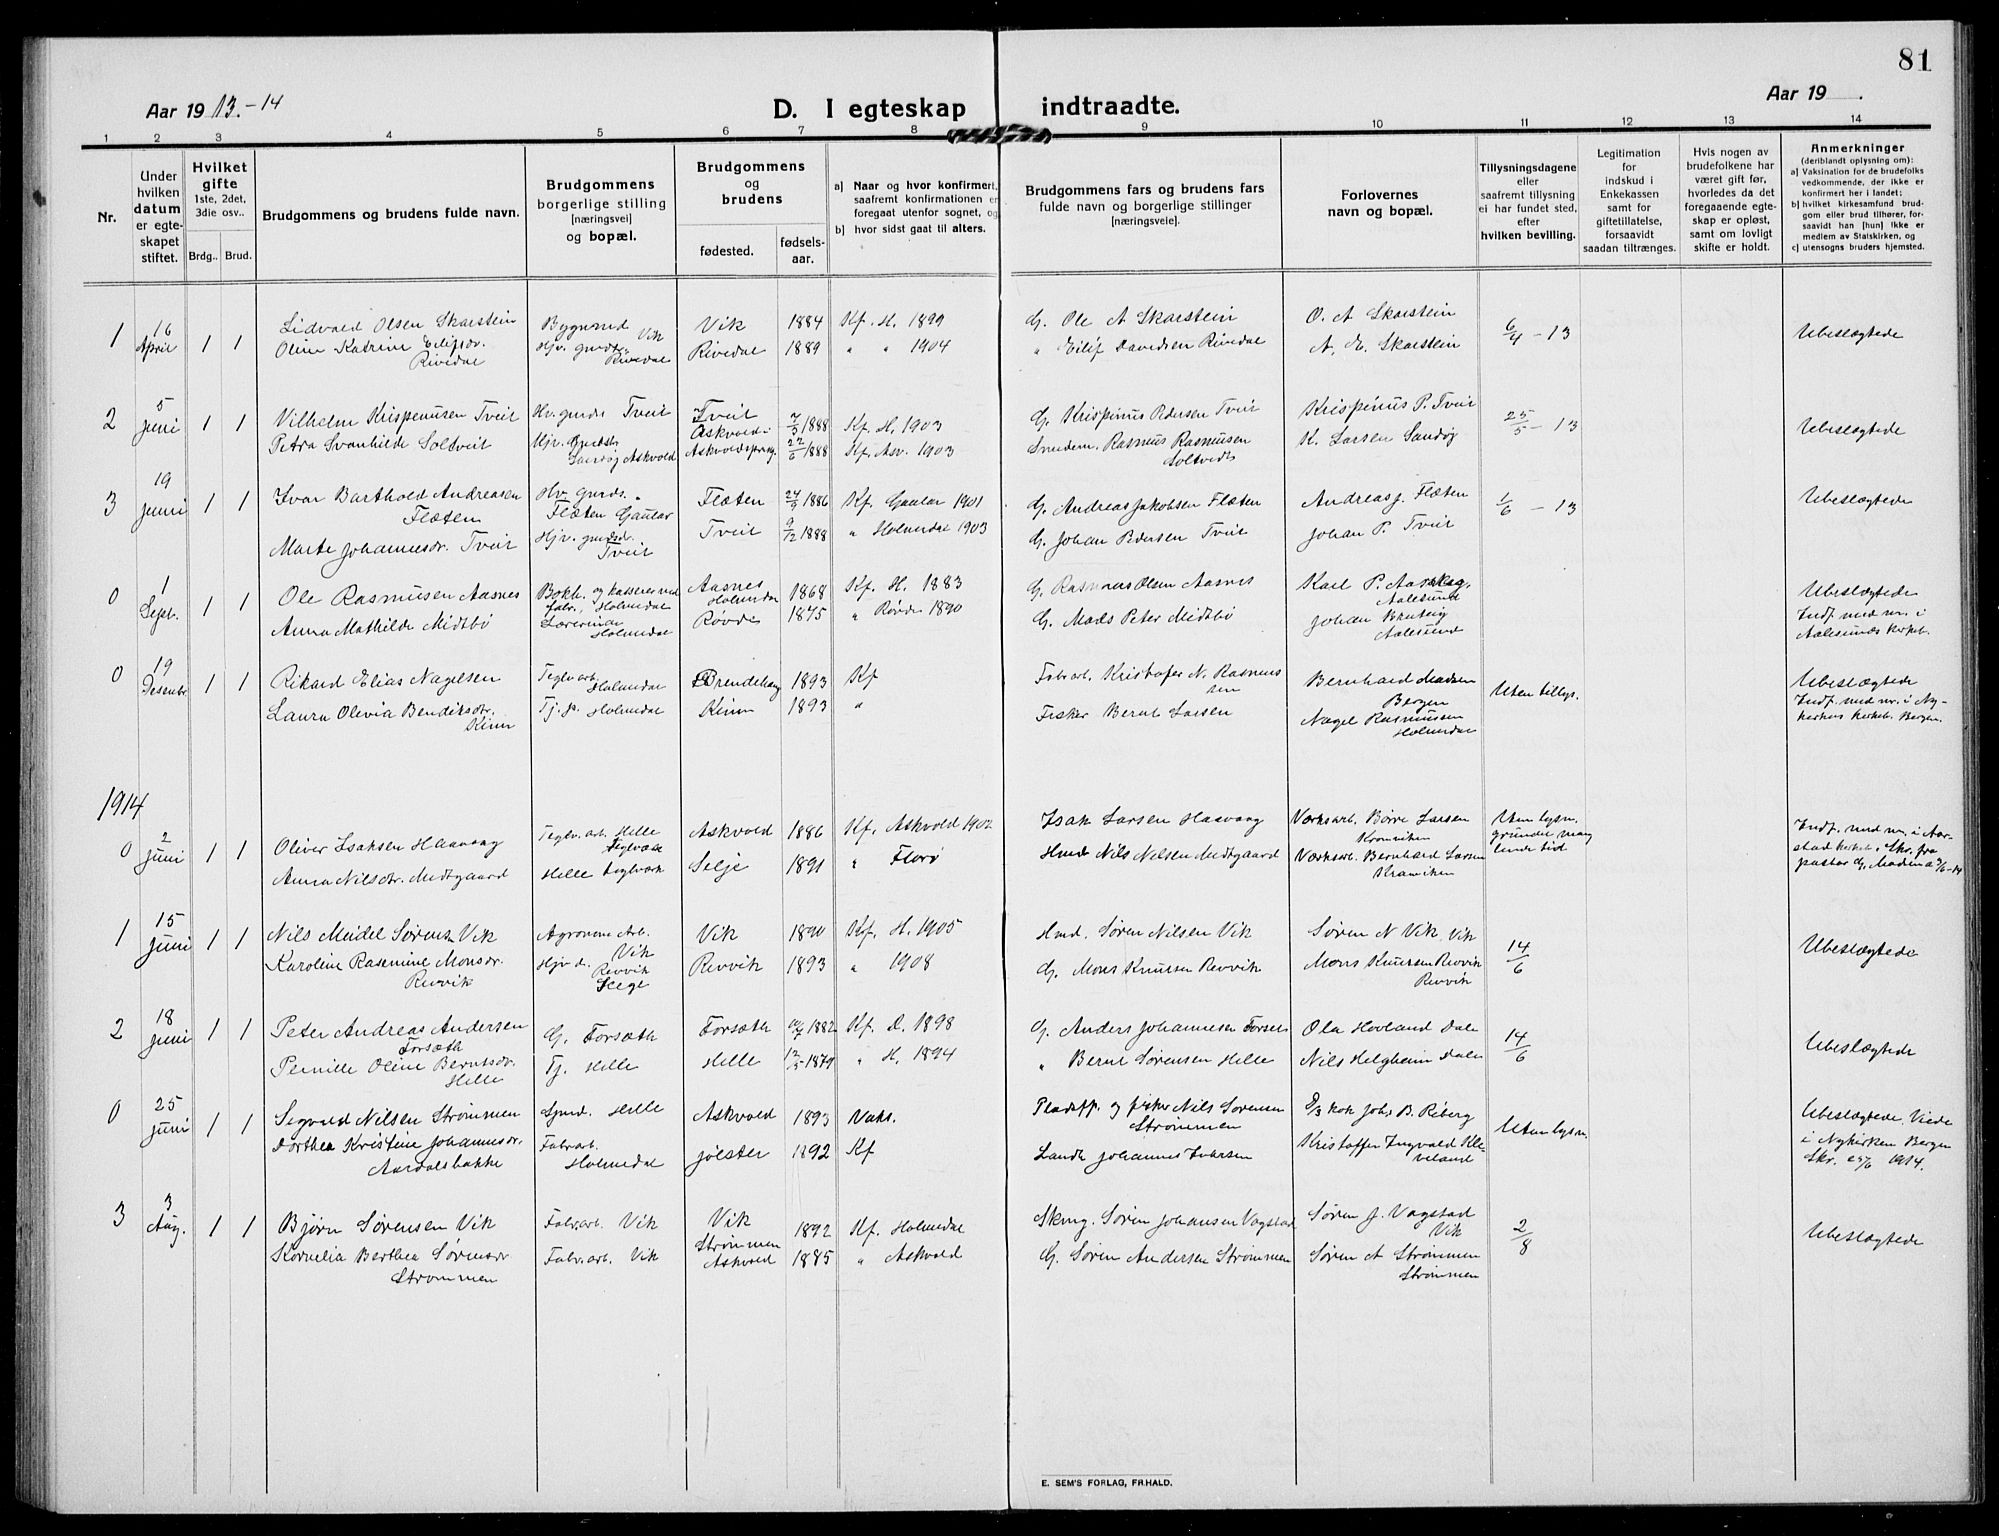 81
Aar 1913.-14
D. I egteskap indtraadte.
Aar 19 .
1 2 3 4 5 6 7 8 9 10 11 12 13 14
Nr.
Under hvilken datum er egte-skapet stiftet.
Hvilket gifte 1ste, 2det, 3die osv..
Brdg.. Brud.
Brudgommens og brudens fulde navn.
Brudgommens borgerlige stilling [næringsvei] og bopæl.
Brudgommens og brudens
fødested. fødsels-aar.
a) Naar og hvor konfirmert, saafremt konfirmationen er foregaat utenfor sognet, og
b) hvor sidst gaat til alters.
Brudgommens fars og brudens fars fulde navn og borgerlige stillinger [næringsveie].
Forlovernes navn og bopæl.
Tillysningsdagene eller saafremt tillysning ei har fundet sted, efter hvilken bevilling.
Legitimation for indskud i Enkekassen samt for giftetillatelse, forsaavidt saadan tiltrænges.
Hvis nogen av brudefolkene har været gift før, hvorledes da det foregaaende egte-skap er opløst, samt om lovligt skifte er holdt.
Anmerkninger (deriblandt oplysning om):
a) Vaksination for de brudefolks vedkommende, der ikke er konfirmert her i landet;
b) hvilket kirkesamfund brud-gom eller brud tilhører, for-saavidt han [hun] ikke er medlem av Statskirken, og
c) utensogns bruders hjemsted.
1 16 April 1 1 Lidvald Olsen Skarstein Vik Vik 1884 Kf. H. 1899 G. Ole A Skarstein O. A Skarstein 6/4 - 13 Ubeslægtede
Oline Katrine Eilifsdr. Rivedal Rivedal Rivedal 1889 " " 1904 " Eilif Davidsen Rivedal A. E. Skarstein
2 5 juni 1 1 Vilhelm Krispenusen Tveit Hv. gmrds Tveit Tveit 7/3 1888 Kf. H. 1903 G. Krispinus Pedersen Tveit Krispinus P. Tveit 25/5 - 13 Ubeslægtede
Petra Svanhilde Soltveit Sandøy Askvold 22/6 1888 Kf. Asv. 1903 Rasmus Rasmusen Soltvedt K. Larsen Sandøy
3 19 juni 1 1 Ivar Barthold Andreasen Flæten Hv. gmrds. Flæten Gaular Flæten 24/9 1886 Kf. Gaular 1901 G. Andreas Jakobsen Flæten Andreas J. Flæten 1/6 - 13 Ubeslægtede
Marte Johannesdr. Tveit Hjv. gmrdsd. Tveit Tveit 9/12 1888 " Holmedal 1903 G. Johan Pedersen Tveit Johan P. Tveit
0 1 Sept. 1 1 Ole Rasmusen Aasnes Bokh. og kasserer ved fabr., Holmedal Aasnes Holmedal 1868 Kf. H. 1883 G. Rasmus Olsen Aasnes Karl P. Aalesund Ubeslægtede
Anna Mathilde Midtbø Lærerinde Holmedal Røvde 1875 " Røvde 1890 G. Mads Peter Midtbø Johan Aalesund Indf. med nr. i Aalesunds kirkeb.
0 19 Desembr 1 1 Rikard Elias Nagelsen Teglv.arb. Holmedal Brendehaug 1893 Kf Fabr.arb. Kristofer N. Rasmussen Bernhard Madsen Bergen Uten tillys. Ubeslægtede
Laura Olivia Bendiksdr. Kinn Tj. p. Holmedal Kinn 1893 " Fisker Bernt Larsen Nagel Rasmussen Holmedal Indf. med nr. i Ny-kirkens kirkeb. Bergen.
1914
0 2 juni 1 1 Oliver Isaksen Haavaag Teglv. arb. Helle Teglværk Askvold 1886 Kf. Askvold 1902 Isak Larsen Haavaag Værksarb. Børre Larsen Uten lysn. grundet mang-lende tid Indf. med nr. i Aar-stad kirkeb. Skr. fra
Anna Nilsdtr. Midtgaard Helle teglværk Selje 1891 " Florø Nils Nilsen Midtgaard Værksarb. Bernhard Larsen
1 15 juni 1 1 Nils Meidel Sørens. Vik Vik Vik 1890 Kf. H. 1905 Hmd. Søren Nilsen Vik Søren N Vik Vik 14/6 Ubeslægtede
Karoline Rasmine Monsdr. Revvik Hjv d. Revvik Revvik 1893 " 1908 G. Mons Knutsen Revvik Mons Knutsen Revvik Revvik
2 18 juni 1 1 Peter Andreas Andersen Forsæth G. Forsæth Forsæth 1882 Kf. D. 1898 G. Anders Johannesen Forseth Ola Hovland Dale 14/6 Ubeslægtede
Pernille Oline Berntsdr. Helle Tj. Helle Helle 1879 " H. 1894 " Bernt Sørensen Helle Nils Helgheim Dale
0 25 juni 1 1 Sigvald Nilsen Strømmen Helle Askvold 1893 Vaks. Pladsfp. og fisker Nils Sørensen Strømmen kok Johs B. Riberg Uten lysn. Ubeslægtede. Viede
Dorthea Kristine Johannesdr. Aardalsbakke Fabr.arb. Holmedal Jølster 1892 Kf Landh. Johannes Ivarsen Kristoffer Ingvald Kleiveland i Nykirken Bergen Skr. 25/6 1914.
3 3 Aug. 1 1 Bjørn Sørensen Vik Fabr.arb. Vik Vik 1892 Kf. Holmedal Skomg. Søren Johansen Vagstad Søren J. Vagstad Vik 2/8 Ubeslægtede
Kornelia Berthea Sørensdr Strømmen Fabr.arb. Vik Strømmen Askvold 1885 " Askvold G. Søren Andersen Strømmen Søren A Strømmen Strømmen
E. SEM'S FORLAG, FR.HALD.